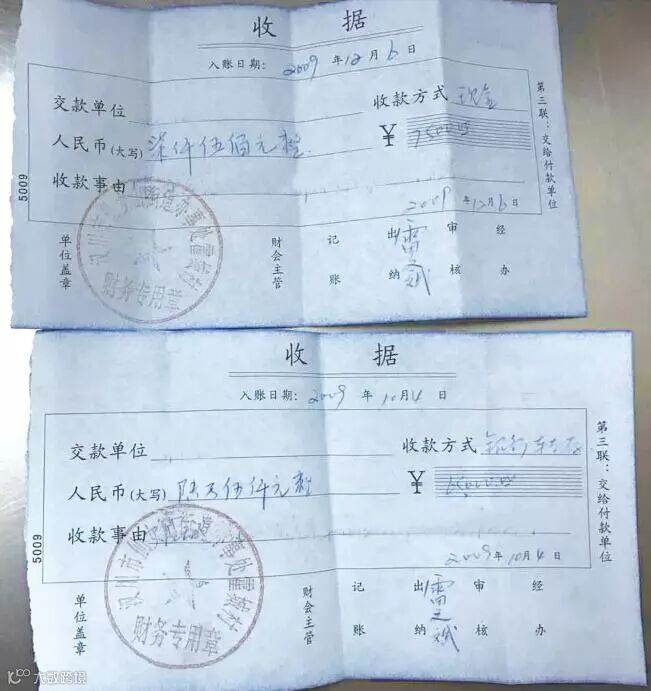 收据
入账日期: 2009 年 12 月 6 日
交款单位 收款方式 现金
人民币(大写) 柒仟伍佰元整 ¥ 7500.00
收款事由
2009 年 12 月 6 日
单位盖章 财会主管 记账 出纳 审核 经办
雷
财务专用章
5009
第三联:交给付款单位
收据
入账日期: 2009 年 10 月 4 日
交款单位 收款方式
人民币(大写) 陆万伍仟元整 ¥ 65000.00
收款事由
2009 年 10 月 4 日
单位盖章 财会主管 记账 出纳 审核 经办
雷
汉川市
财务专用章
5009
第三联:交给付款单位
大成跨境